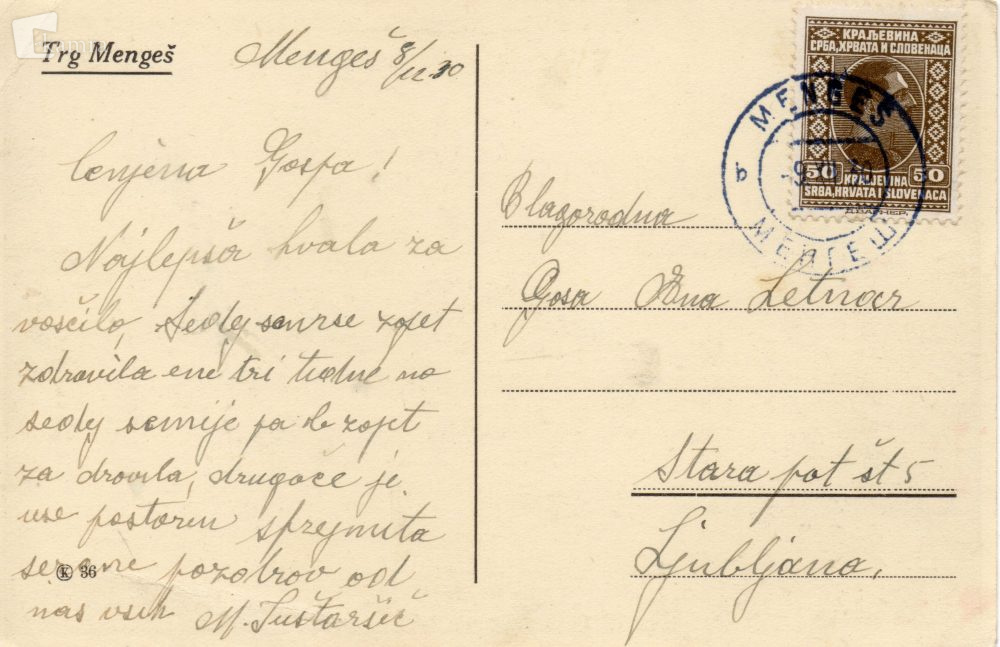 Trg Mengeš
Mengeš 8/12.30
Cenjena Gospa!
Najlepša hvala za
voščilo, Sedaj sem se zopet
zdravila ene tri tedne no
sedaj pa zopet
za drovila, drugače je
use po starem sprejmita
pozdrov od
nas vseh M. Šuštaršič
Ⓚ 36
КРАЉЕВИНА
СРБА, ХРВАТА И СЛОВЕНАЦА
50 KRALJEVINA 50
SRBA, HRVATA I SLOVENACA
MENGEŠ
b
-9.XII.30
МЕНГЕШ
Blagorodna
Gosa Ena Letnar
Stara pot št 5
Ljubljana,